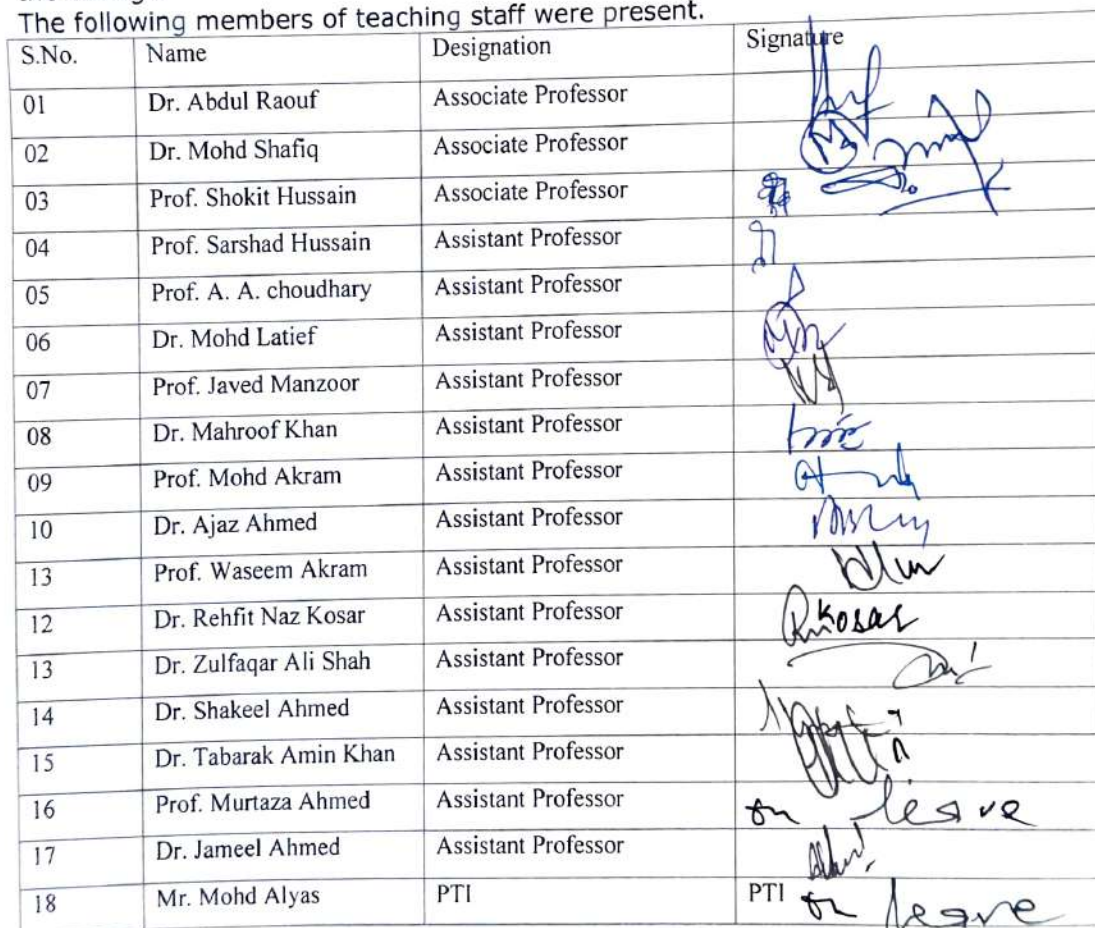 The following members of teaching staff were present.
S.No. Name Designation Signature
01 Dr. Abdul Raouf Associate Professor
02 Dr. Mohd Shafiq Associate Professor
03 Prof. Shokit Hussain Associate Professor
04 Prof. Sarshad Hussain Assistant Professor
05 Prof. A. A. choudhary Assistant Professor
06 Dr. Mohd Latief Assistant Professor
07 Prof. Javed Manzoor Assistant Professor
08 Dr. Mahroof Khan Assistant Professor
09 Prof. Mohd Akram Assistant Professor
10 Dr. Ajaz Ahmed Assistant Professor
13 Prof. Waseem Akram Assistant Professor
12 Dr. Rehfit Naz Kosar Assistant Professor Kosar
13 Dr. Zulfaqar Ali Shah Assistant Professor
14 Dr. Shakeel Ahmed Assistant Professor
15 Dr. Tabarak Amin Khan Assistant Professor
16 Prof. Murtaza Ahmed Assistant Professor on leave
17 Dr. Jameel Ahmed Assistant Professor
18 Mr. Mohd Alyas PTI PTI on leave